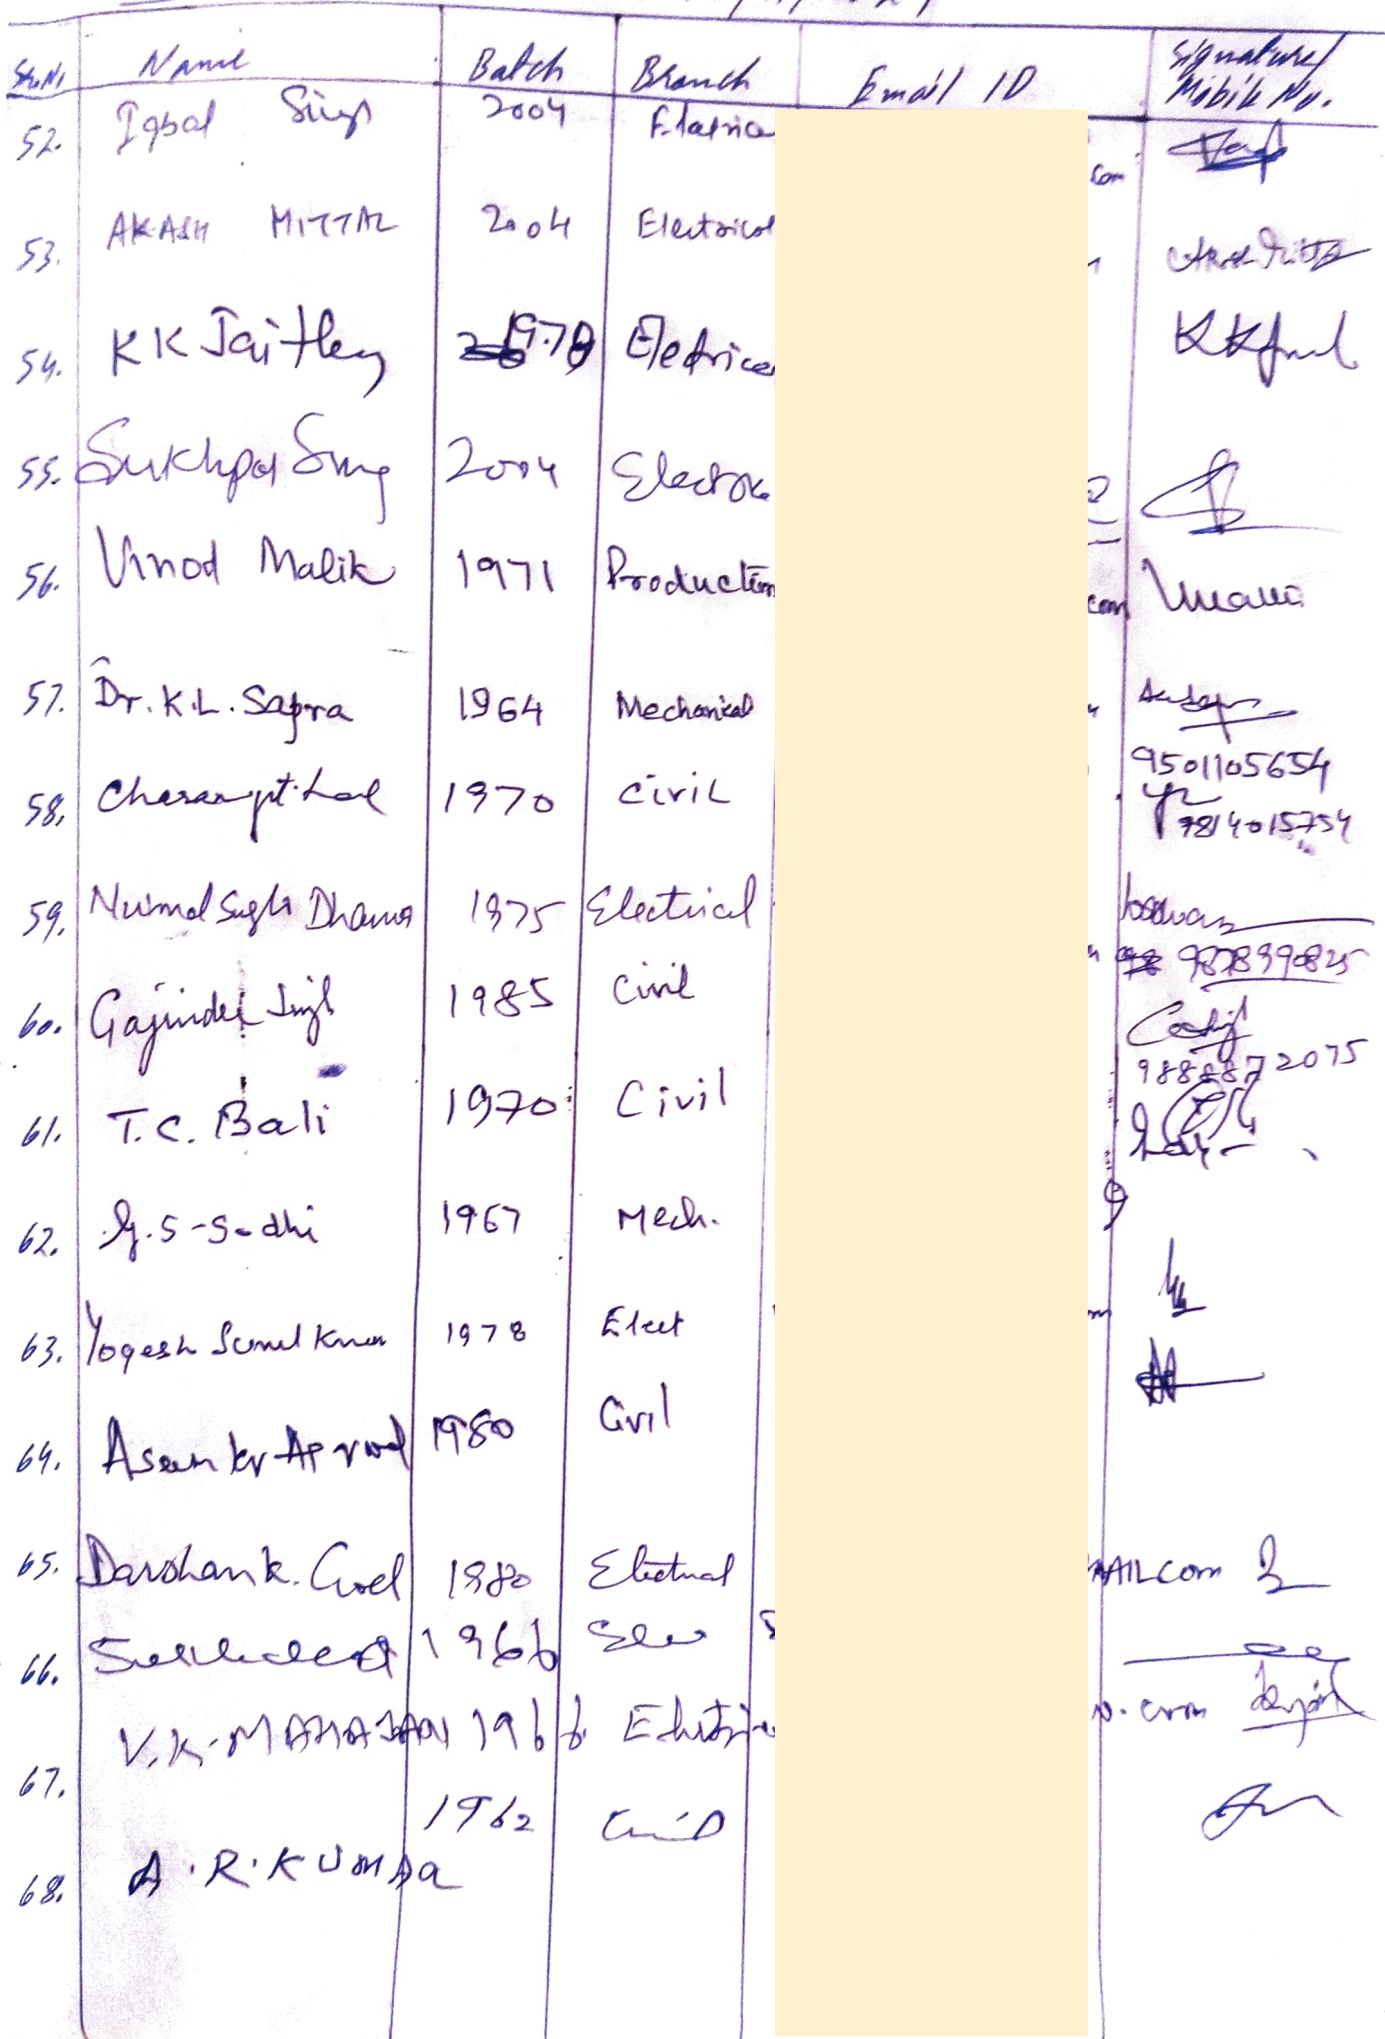 Sr.No Name Batch Branch Email ID Signature/ Mobile No.
52. Iqbal Singh 2004 Electrica com
53. AKASH MITTAL 2004 Electrical
54. KK Jaitley 1970 Eletrica
55. Sukhpal Sing 2004 Electric
56. Vinod Malik 1971 Production com
57. Dr. K.L. Sapra 1964 Mechanical
9501105654
58. Charanjit Lal 1970 Civil
7814015754
59. Nirmal Singh 1975 Electrical
9878390825
60. Gajinder Singh 1985 Civil
9888872075
61. T.C. Bali 1970 Civil
62. G.S-Sodhi 1967 Mech.
63. Yogesh 1978 Elect
64. 1980 Civil
65. Darshan k. Goel 1980 Electrical MAIL.COM
66. 1966
67. V.K. MAHAJAN 1966 com
68. A.R. 1962 Civil